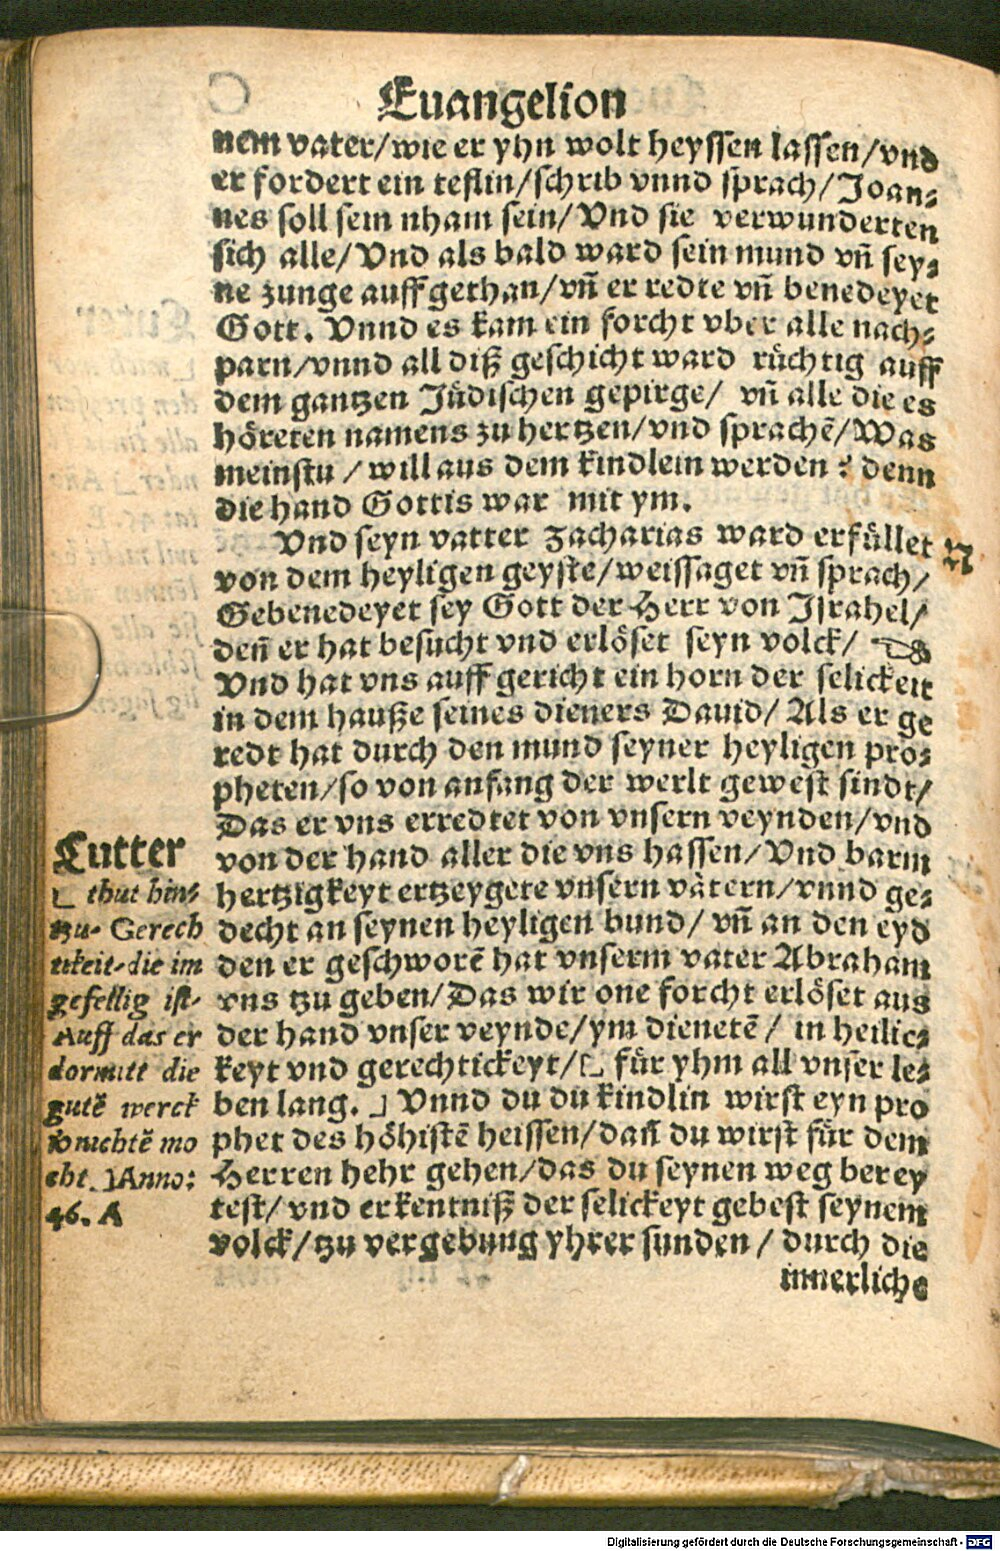 Euangelion
nem vater/wie er yhn wolt heyssen lassen/vnd
er fordert ein teflin/schrib vnnd sprach/Joan⸗
nes soll sein nham sein/Vnd sie verwunderten
sich alle/Vnd als bald ward sein mund vñ sey⸗
ne zunge auffgethan/vñ er redte vñ benedeyet
Gott. Vnnd es kam ein forcht vber alle nach⸗
parn/vnnd all diß geschicht ward rüchtig auff
dem gantzen Jüdischen gepirge/ vñ alle die es
höreten namens zu hertzen/vnd sprachē/Was
meinstu/will aus dem kindlein werden? denn
die hand Gottis war mit ym.
Vnd seyn vatter Zacharias ward erfüllet
von dem heyligen geyste/weissaget vñ sprach/
Gebenedeyet sey Gott der Herr von Jsrahel/
deñ er hat besucht vnd erlöset seyn volck/
Vnd hat vns auffgericht ein horn der selickeit
in dem hauße seines dieners Dauid/Als er ge
redt hat durch den mund seyner heyligen pro⸗
pheten/so von anfang der werlt gewest sindt/
Das er vns erredtet von vnsern veynden/vnd
von der hand aller die vns hassen/Vnd barm
hertzigkeyt ertzeygete vnsern vätern/vnnd ge⸗
decht an seynen heyligen bund/ vñ an den eyd
den er geschworē hat vnserm vater Abraham
vns tzu geben/Das wir one forcht erlöset aus
der hand vnser veynde/ym dienetē/ in heilic⸗
keyt vnd gerechtickeyt/⌊ für yhm all vnser le⸗
ben lang.⌋ Vnnd du du kindlin wirst eyn pro
phet des höhistē heissen/dañ du wirst für dem
Herren hehr gehen/das du seynen weg berey
test/vnd erkentniß der selickeyt gebest seynem
volck/tzu vergebung yhrer sunden/durch die
innerliche
Lutter
⌊ thut hin⸗
tzu- Gerech
tikeit-die im
gefellig ist-
Auff das er
dormitt die
gutē werck
vnichtē mo
cht.⌋Anno:
46. A
Digitalisierung gefördert durch die Deutsche Forschungsgemeinschaft - DFG